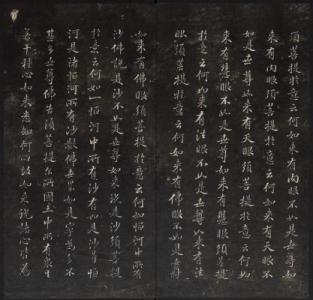 須菩提於意云何如來有肉眼不如是世尊如
來有肉眼須菩提於意云何如來有天眼不
如是世尊如來有天眼須菩提於意云何如
來有慧眼不如是世尊如來有慧眼須菩提
於意云何如來有法眼不如是世尊如來有法
眼須菩提於意云何如來有佛眼不如是世尊
如來有佛眼須菩提於意云何如恒河中所有
沙佛說是沙不如是世尊如來說是沙須菩提
於意云何如一恒河中所有沙有如是沙等恒
河是諸恒河所有沙數佛世界如是寧為多不
甚多世尊佛告須菩提爾所國土中所有眾生
若干種心如來悉知何以故如來說諸心皆為